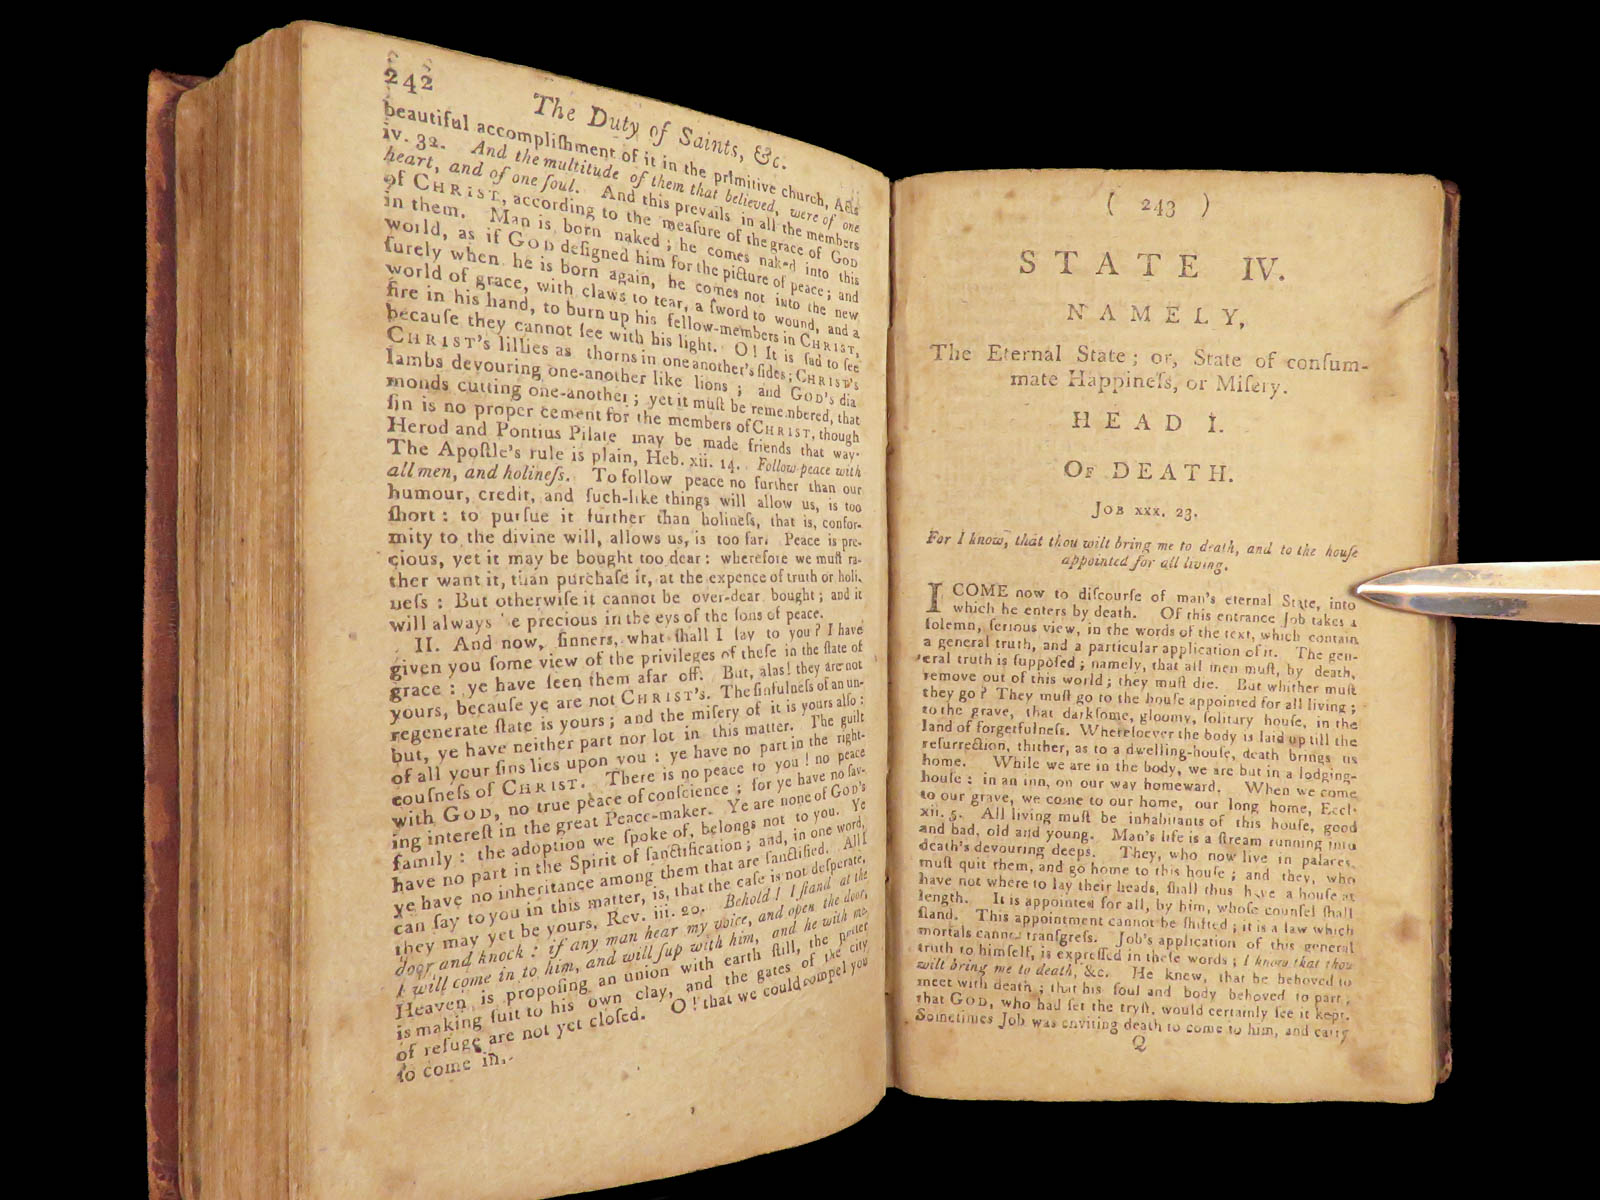 242
The Duty of Saints, &c.
beautiful accompliſhment of it in the primitive church, Acts
iv. 32. And the multitude of them that believed, were of one
heart, and of one ſoul. And this prevails in all the members
of CHRIST, according to the meaſure of the grace of GOD
in them. Man is born naked; he comes naked into this
world, as if GOD deſigned him for the picture of peace; and
ſurely when he is born again, he comes not into the new
world of grace, with claws to tear, a ſword to wound, and a
fire in his hand, to burn up his fellow-members in CHRIST,
becauſe they cannot ſee with his light. O! It is ſad to ſee
CHRIST's lillies as thorns in one another's ſides; CHRIST's
lambs devouring one-another like lions; and GOD's dia
monds cutting one-another; yet it muſt be remembered, that
ſin is no proper cement for the members of CHRIST, though
Herod and Pontius Pilate may be made friends that way.
The Apoſtle's rule is plain, Heb. xii. 14. Follow peace with
all men, and holineſs. To follow peace no further than our
humour, credit, and ſuch-like things will allow us, is too
ſhort: to purſue it further than holineſs, that is, confor-
mity to the divine will, allows us, is too far. Peace is pre-
cious, yet it may be bought too dear: wherefore we muſt ra-
ther want it, than purchaſe it, at the expence of truth or holi-
neſs: But otherwiſe it cannot be over-dear bought; and it
will always e precious in the eyes of the ſons of peace.
II. And now, ſinners, what ſhall I ſay to you? I have
given you ſome view of the privileges of theſe in the ſtate of
grace: ye have ſeen them afar off. But, alas! they are not
yours, becauſe ye are not CHRIST's. The ſinfulneſs of an un-
regenerate ſtate is yours; and the miſery of it is yours alſo:
but, ye have neither part nor lot in this matter. The guilt
of all your ſins lies upon you: ye have no part in the right-
eouſneſs of CHRIST. There is no peace to you! no peace
with GOD, no true peace of conſcience; for ye have no ſav-
ing intereſt in the great Peace-maker. Ye are none of GOD's
family: the adoption we ſpoke of, belongs not to you. Ye
have no part in the Spirit of ſanctification; and, in one word,
ye have no inheritance among them that are ſanctified. All I
can ſay to you in this matter, is, that the caſe is not deſperate,
they may yet be yours, Rev. iii. 20. Behold! I ſtand at the
door and knock: if any man hear my voice, and open the door,
I will come in to him, and will ſup with him, and he with me.
Heaven is propoſing an union with earth ſtill, the potter
is making ſuit to his own clay, and the gates of the city
of refuge are not yet cloſed. O! that we could compel you
to come in.
( 243 )
STATE IV.
NAMELY,
The Eternal State; or, State of conſum-
mate Happineſs, or Miſery.
HEAD I.
OF DEATH.
JOB xxx. 23.
For I know, that thou wilt bring me to death, and to the houſe
appointed for all living.
I COME now to diſcourſe of man's eternal State, into
which he enters by death. Of this entrance Job takes a
ſolemn, ſerious view, in the words of the text, which contain
a general truth, and a particular application of it. The gen-
eral truth is ſuppoſed; namely, that all men muſt, by death,
remove out of this world; they muſt die. But whither muſt
they go? They muſt go to the houſe appointed for all living;
to the grave, that darkſome, gloomy, ſolitary houſe, in the
land of forgetfulneſs. Whereſoever the body is laid up till the
reſurrection, thither, as to a dwelling-houſe, death brings us
home. While we are in the body, we are but in a lodging-
houſe: in an inn, on our way homeward. When we come
to our grave, we come to our home, our long home, Eccl.
xii. 5. All living muſt be inhabitants of this houſe, good
and bad, old and young. Man's life is a ſtream running into
death's devouring deeps. They, who now live in palaces,
muſt quit them, and go home to this houſe; and they, who
have not where to lay their heads, ſhall thus have a houſe at
length. It is appointed for all, by him, whoſe counſel ſhall
ſtand. This appointment cannot be ſhifted; it is a law which
mortals cannot tranſgreſs. Job's application of this general
truth to himſelf, is expreſſed in theſe words; I know that thou
wilt bring me to death, &c. He knew, that he behoved to
meet with death; that his ſoul and body behoved to part;
that GOD, who had ſet the tryſt, would certainly ſee it kept.
Sometimes Job was inviting death to come to him, and carry
Q